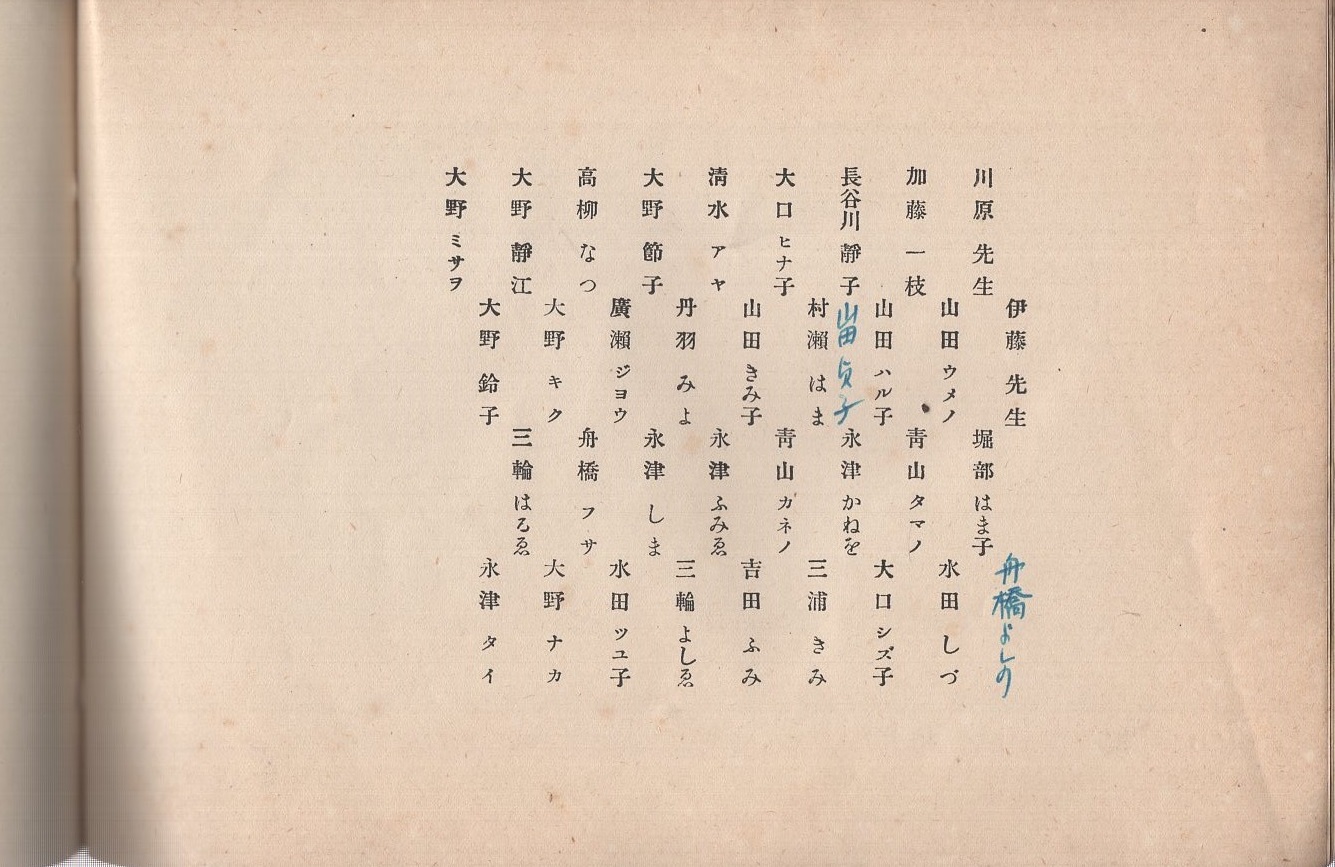 川原先生
加藤一枝
長谷川靜子
大口ヒナ子
淸水アヤ
大野節子
高柳なつ
大野靜江
大野ミサヲ
伊藤先生
山田ウメノ
山田ハル子
山田貞子
村瀨はま
山田きみ子
丹羽みよ
廣瀨ジヨウ
大野キク
大野鈴子
堀部はま子
靑山タマノ
永津かねを
靑山ガネノ
永津ふみゑ
永津しま
舟橋フサ
三輪はるゑ
舟橋よしの
水田しづ
大口シズ子
三浦きみ
吉田ふみ
三輪よしゑ
水田ツユ子
大野ナカ
永津タイ